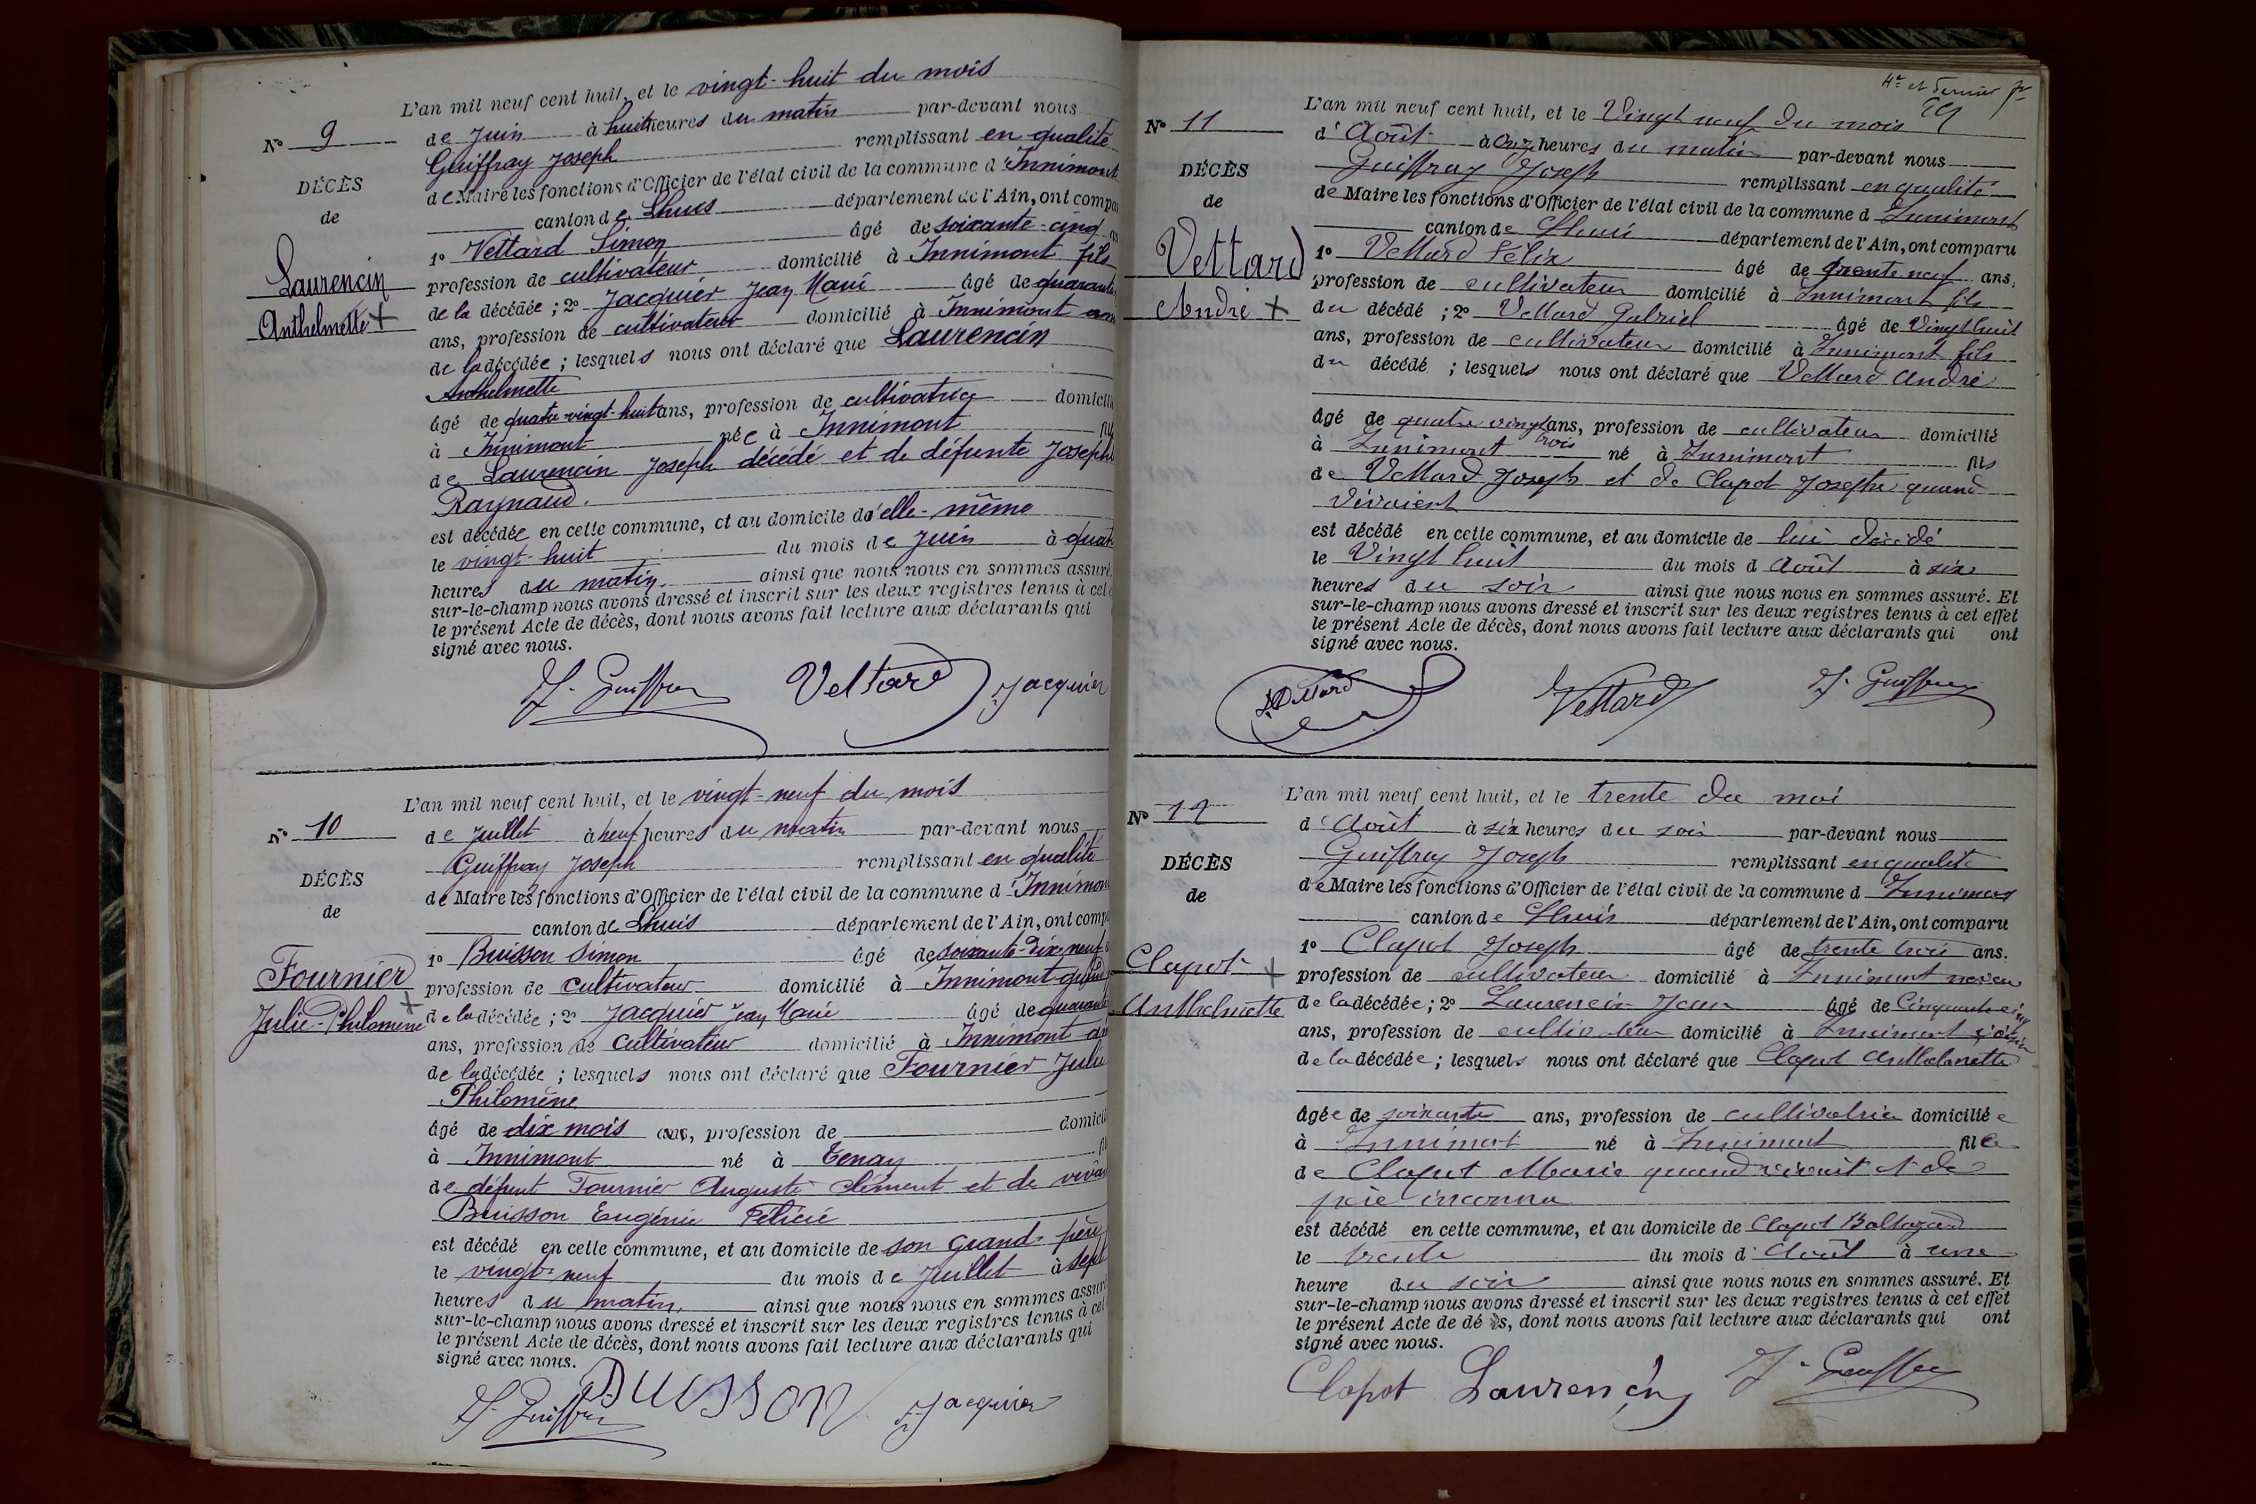 L'an mil neuf cent huit, et le vingt-huit du mois
N° 9
de Juin à huit heures du matin par-devant nous
Guiffray Joseph remplissant en qualité
DÉCÈS
de Maire les fonctions d'Officier de l'état civil de la commune d'Innimont
de
canton de Lhuis département de l'Ain, ont compa
1° Vettard Simon âgé de soixante-cinq
Laurencin
profession de cultivateur domicilié à Innimont fils
Anthelmette +
de la décédée ; 2° Jacquier Jean Marie âgé de quarante
ans, profession de cultivateur domicilié à Innimont am
de la décédée ; lesquels nous ont déclaré que Laurencin
Anthelmette
âgé de quatre-vingt-huit ans, profession de cultivatrice domicili
à Innimont née à Innimont fil
de Laurencin Joseph décédé et de défunte Joseph
Raynaud.
est décédée en cette commune, et au domicile d'elle-même
le vingt-huit du mois de Juin à quat
heures du matin. ainsi que nous nous en sommes assuré.
sur-le-champ nous avons dressé et inscrit sur les deux registres tenus à cet e
le présent Acte de décès, dont nous avons fait lecture aux déclarants qui
signé avec nous.
J. Guiffray Vettard Jacquier
L'an mil neuf cent huit, et le vingt-neuf du mois
N° 10
de Juillet à neuf heures du matin par-devant nous
Guiffray Joseph remplissant en qualité
DÉCÈS
de Maire les fonctions d'Officier de l'état civil de la commune d'Innimon
de
canton de Lhuis département de l'Ain, ont comp
1° Buisson Simon âgé de soixante-dix-neuf
Fournier
profession de cultivateur domicilié à Innimont
Julie-Philomène +
de la décédée ; 2° Jacquier Jean Marie âgé de quarante
ans, profession de cultivateur domicilié à Innimont am
de la décédée ; lesquels nous ont déclaré que Fournier Julie
Philomène
âgé de dix mois ans, profession de domicili
à Innimont né à Tenay fi
de défunt Fournier Auguste Clément et de vivan
Buisson Eugénie Félicie
est décédé en cette commune, et au domicile de son grand-père
le vingt-neuf du mois de Juillet à sept
heures du matin, ainsi que nous nous en sommes assuré
sur-le-champ nous avons dressé et inscrit sur les deux registres tenus à cet
le présent Acte de décès, dont nous avons fait lecture aux déclarants qui
signé avec nous.
J. Guiffray BUISSON Jacquier
4e et dernier
L'an mil neuf cent huit, et le Vingt neuf du mois
N° 11
d'Août à onze heures du matin par-devant nous
Guiffray Joseph remplissant en qualité
DÉCÈS
de Maire les fonctions d'Officier de l'état civil de la commune d Innimont
de
canton de Lhuis département de l'Ain, ont comparu
1° Vettard Félix âgé de trente neuf ans,
Vettard
profession de cultivateur domicilié à Innimont fils
André +
du décédé ; 2° Vettard Gabriel âgé de Vingt huit
ans, profession de cultivateur domicilié à Innimont fils
du décédé ; lesquels nous ont déclaré que Vettard André
âgé de quatre vingt trois ans, profession de cultivateur domicilié
à Innimont né à Innimont fils
de Vettard Joseph et de Clapot Josephe quand
vivaient
est décédé en cette commune, et au domicile de lui décédé
le Vingt huit du mois d Août à six
heures du soir ainsi que nous nous en sommes assuré. Et
sur-le-champ nous avons dressé et inscrit sur les deux registres tenus à cet effet
le présent Acte de décès, dont nous avons fait lecture aux déclarants qui ont
signé avec nous.
Vettard Vettard J. Guiffray
L'an mil neuf cent huit, et le trente du moi
N° 12
d'Août à six heures du soir par-devant nous
Guiffray Joseph remplissant en qualité
DÉCÈS
de Maire les fonctions d'Officier de l'état civil de la commune d Innimont
de
canton de Lhuis département de l'Ain, ont comparu
1° Clapot Joseph âgé de trente trois ans.
Clapot +
profession de cultivateur domicilié à Innimont neveu
Anthelmette
de la décédée ; 2° Laurencin Jean âgé de Cinquante cinq
ans, profession de cultivateur domicilié à Innimont voisin
de la décédée ; lesquels nous ont déclaré que Clapot Anthelmette
âgée de soixante ans, profession de cultivatrice domiciliée
à Innimont né à Innimont fille
de Clapot Marie quand vivait et de
père inconnu
est décédé en cette commune, et au domicile de Clapot Baltazard
le trente du mois d'Août à une
heure du soir ainsi que nous nous en sommes assuré. Et
sur-le-champ nous avons dressé et inscrit sur les deux registres tenus à cet effet
le présent Acte de dé s, dont nous avons fait lecture aux déclarants qui ont
signé avec nous.
Clapot Laurencin J. Guiffray